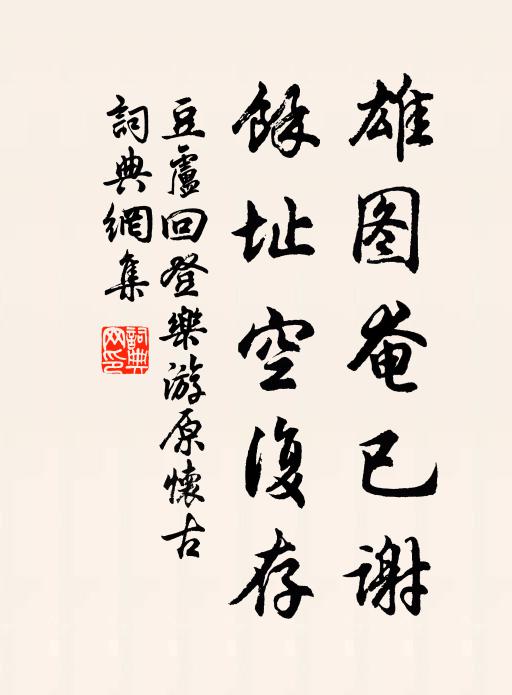 雄图奄已谢
餘址空復存
豆盧回登樂游原懷古
詞典網集
詞典網印